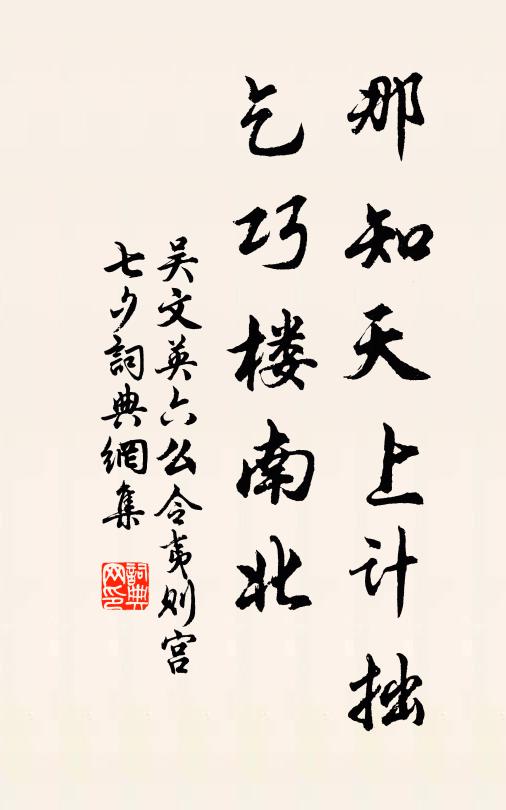 那知天上计拙
乞巧楼南北
吴文英六么令夷则宫
七夕詞典網集
詞典
网印